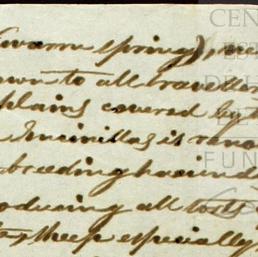 (warm springs), are
own to all travellers
plains covered by the
Encinillas is reno
breeding hacienda
oducing all sorts
sheep especially
CEN
ES
DE
FUN